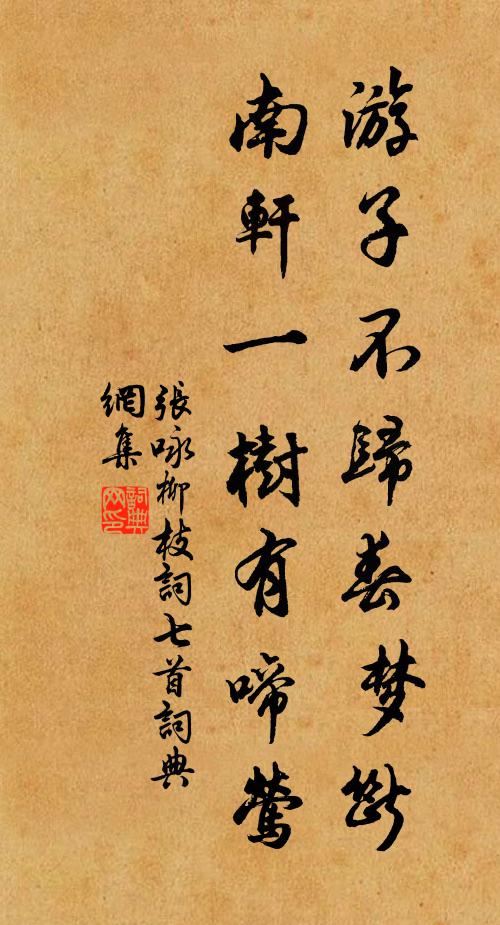 游子不歸春梦斷
南軒一樹有啼鶯
張咏柳枝詞七首詞典
網集
詞典
网印